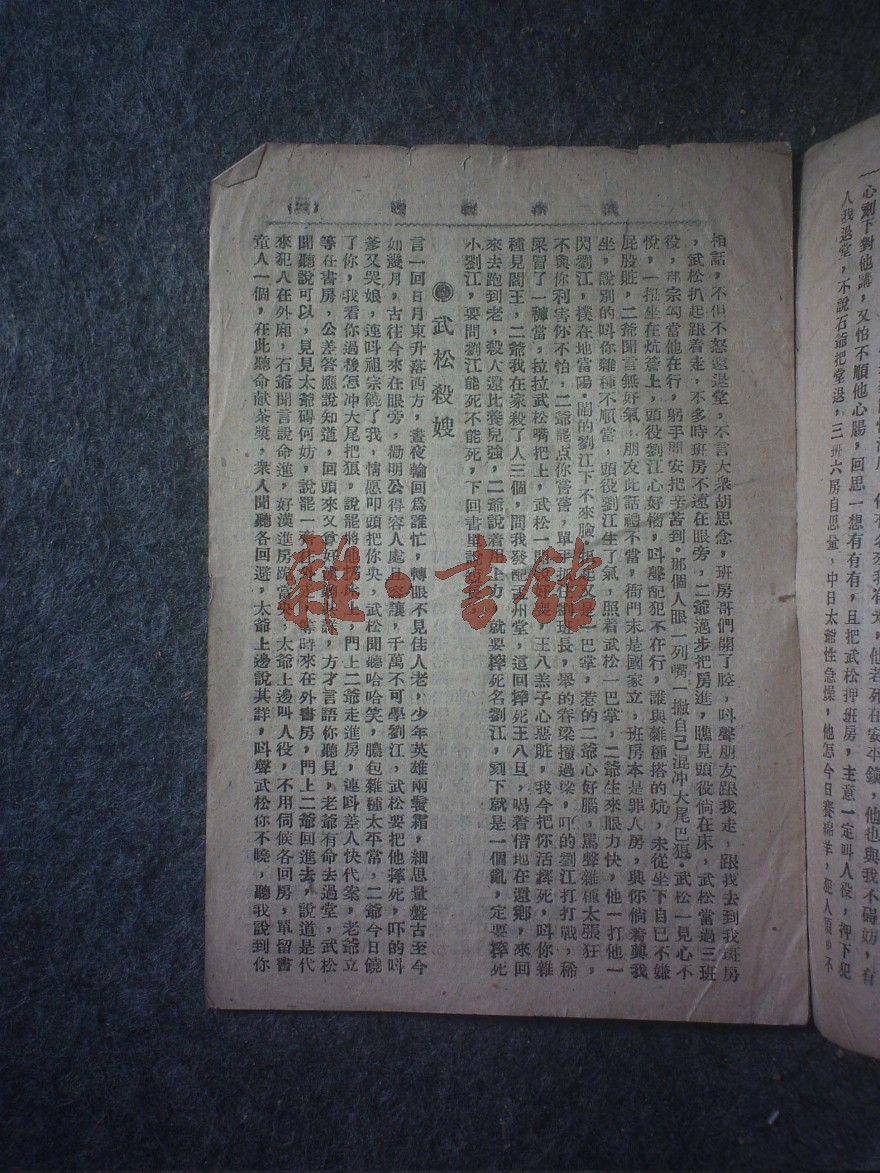 相話，不但不怒還退堂，不言大衆胡思念，班房哥們開了腔，呌聲朋友跟我走，跟我去到我班房
，武松扒起跟着走，不多時班房不遠在眼旁，二爺邁步把房進，瞧見頭役倘在床，武松當過三班
役，那宗勾當他在行，躬手問安把辛苦到．那個人眼一列嘴一撇自己混冲大尾巴狼．武松一見心不
悅，一扭坐在炕簷上，頭役劉江心好惱，呌聲配犯不在行，誰與雜種搭的炕，未從坐下自已不嫌
屁股賍，二爺聞言無好氣．朋友此話禮不當，衙門末是國家立，班房本是罪人房，與你倘着與我
坐，說別的呌你雜種不順當，頭役劉江生了氣，照着武松一巴掌，二爺生來眼力快，他一打他一
閃劉江，撲在地當陽．鬧的劉江下不來臉，起又是一巴掌，惹的二爺心好腦，罵聲雜種太張狂，
不與你利害你不怕，二爺罷点你嘗嘗，單手班長，舉的脊梁撞過梁，吓的劉江打打戰，稀
屎冒了一褲當，拉拉武松嘴把上，武松一見說好，王八羔子心惡賍，我今把你活摔死，呌你雜
種見閻王，二爺我在家殺了人三個，問我發配孟州堂，這回摔死王八旦，喝着借地在還鄉，來回
來去跑到老，殺人還比養兒強，二爺說着用上力，就要摔死名劉江，刻下就是一個亂，定要摔死
小劉江，要問劉江能死不能死，下回書里說
武松殺嫂
言一回日月東升落西方，晝夜輪回爲誰忙，轉眼不見佳人老，少年英雄兩鬢霜，細思量盤古至今
如幾月，古往今來在眼旁，勸明公得容人處且容讓，千萬不可學劉江，武松要把他摔死，吓的呌
爹又哭娘，連呌祖宗饒了我，情愿叩頭把你央，武松聞聽哈哈笑，膿包雜種太平常，二爺今日饒
了你，我看你過後怎冲大尾把狼，說罷將他上，門上二爺走進房，連呌差人快代案，老爺立
等在書房，公差答應說知道，回頭來又，方才言語你聽見，老爺有命去過堂，武松
聞聽說可以，見見太爺碍何妨，說罷一齊等時來在外書房，門上二爺回進去，說道是代
來犯人在外廂，石爺聞言說命進，好漢進房當央，太爺上邊叫人役，不用伺候各回房，單留書
童人一個，在此聽命献茶漿，衆人聞聽各回避，太爺上邊說其詳，呌聲武松你不曉，聽我說到你
雜·書舘
心剩下對他講，又怕不順他心腸，回思一想有有有，且把武松押班房，主意一定叫人役，押下犯
人我退堂，不說石爺把堂退，三班六房自思量，中日太爺性急燥，他怎今日賽綿羊，犯人
他若死在安平鎮，他也與我不碍妨，有